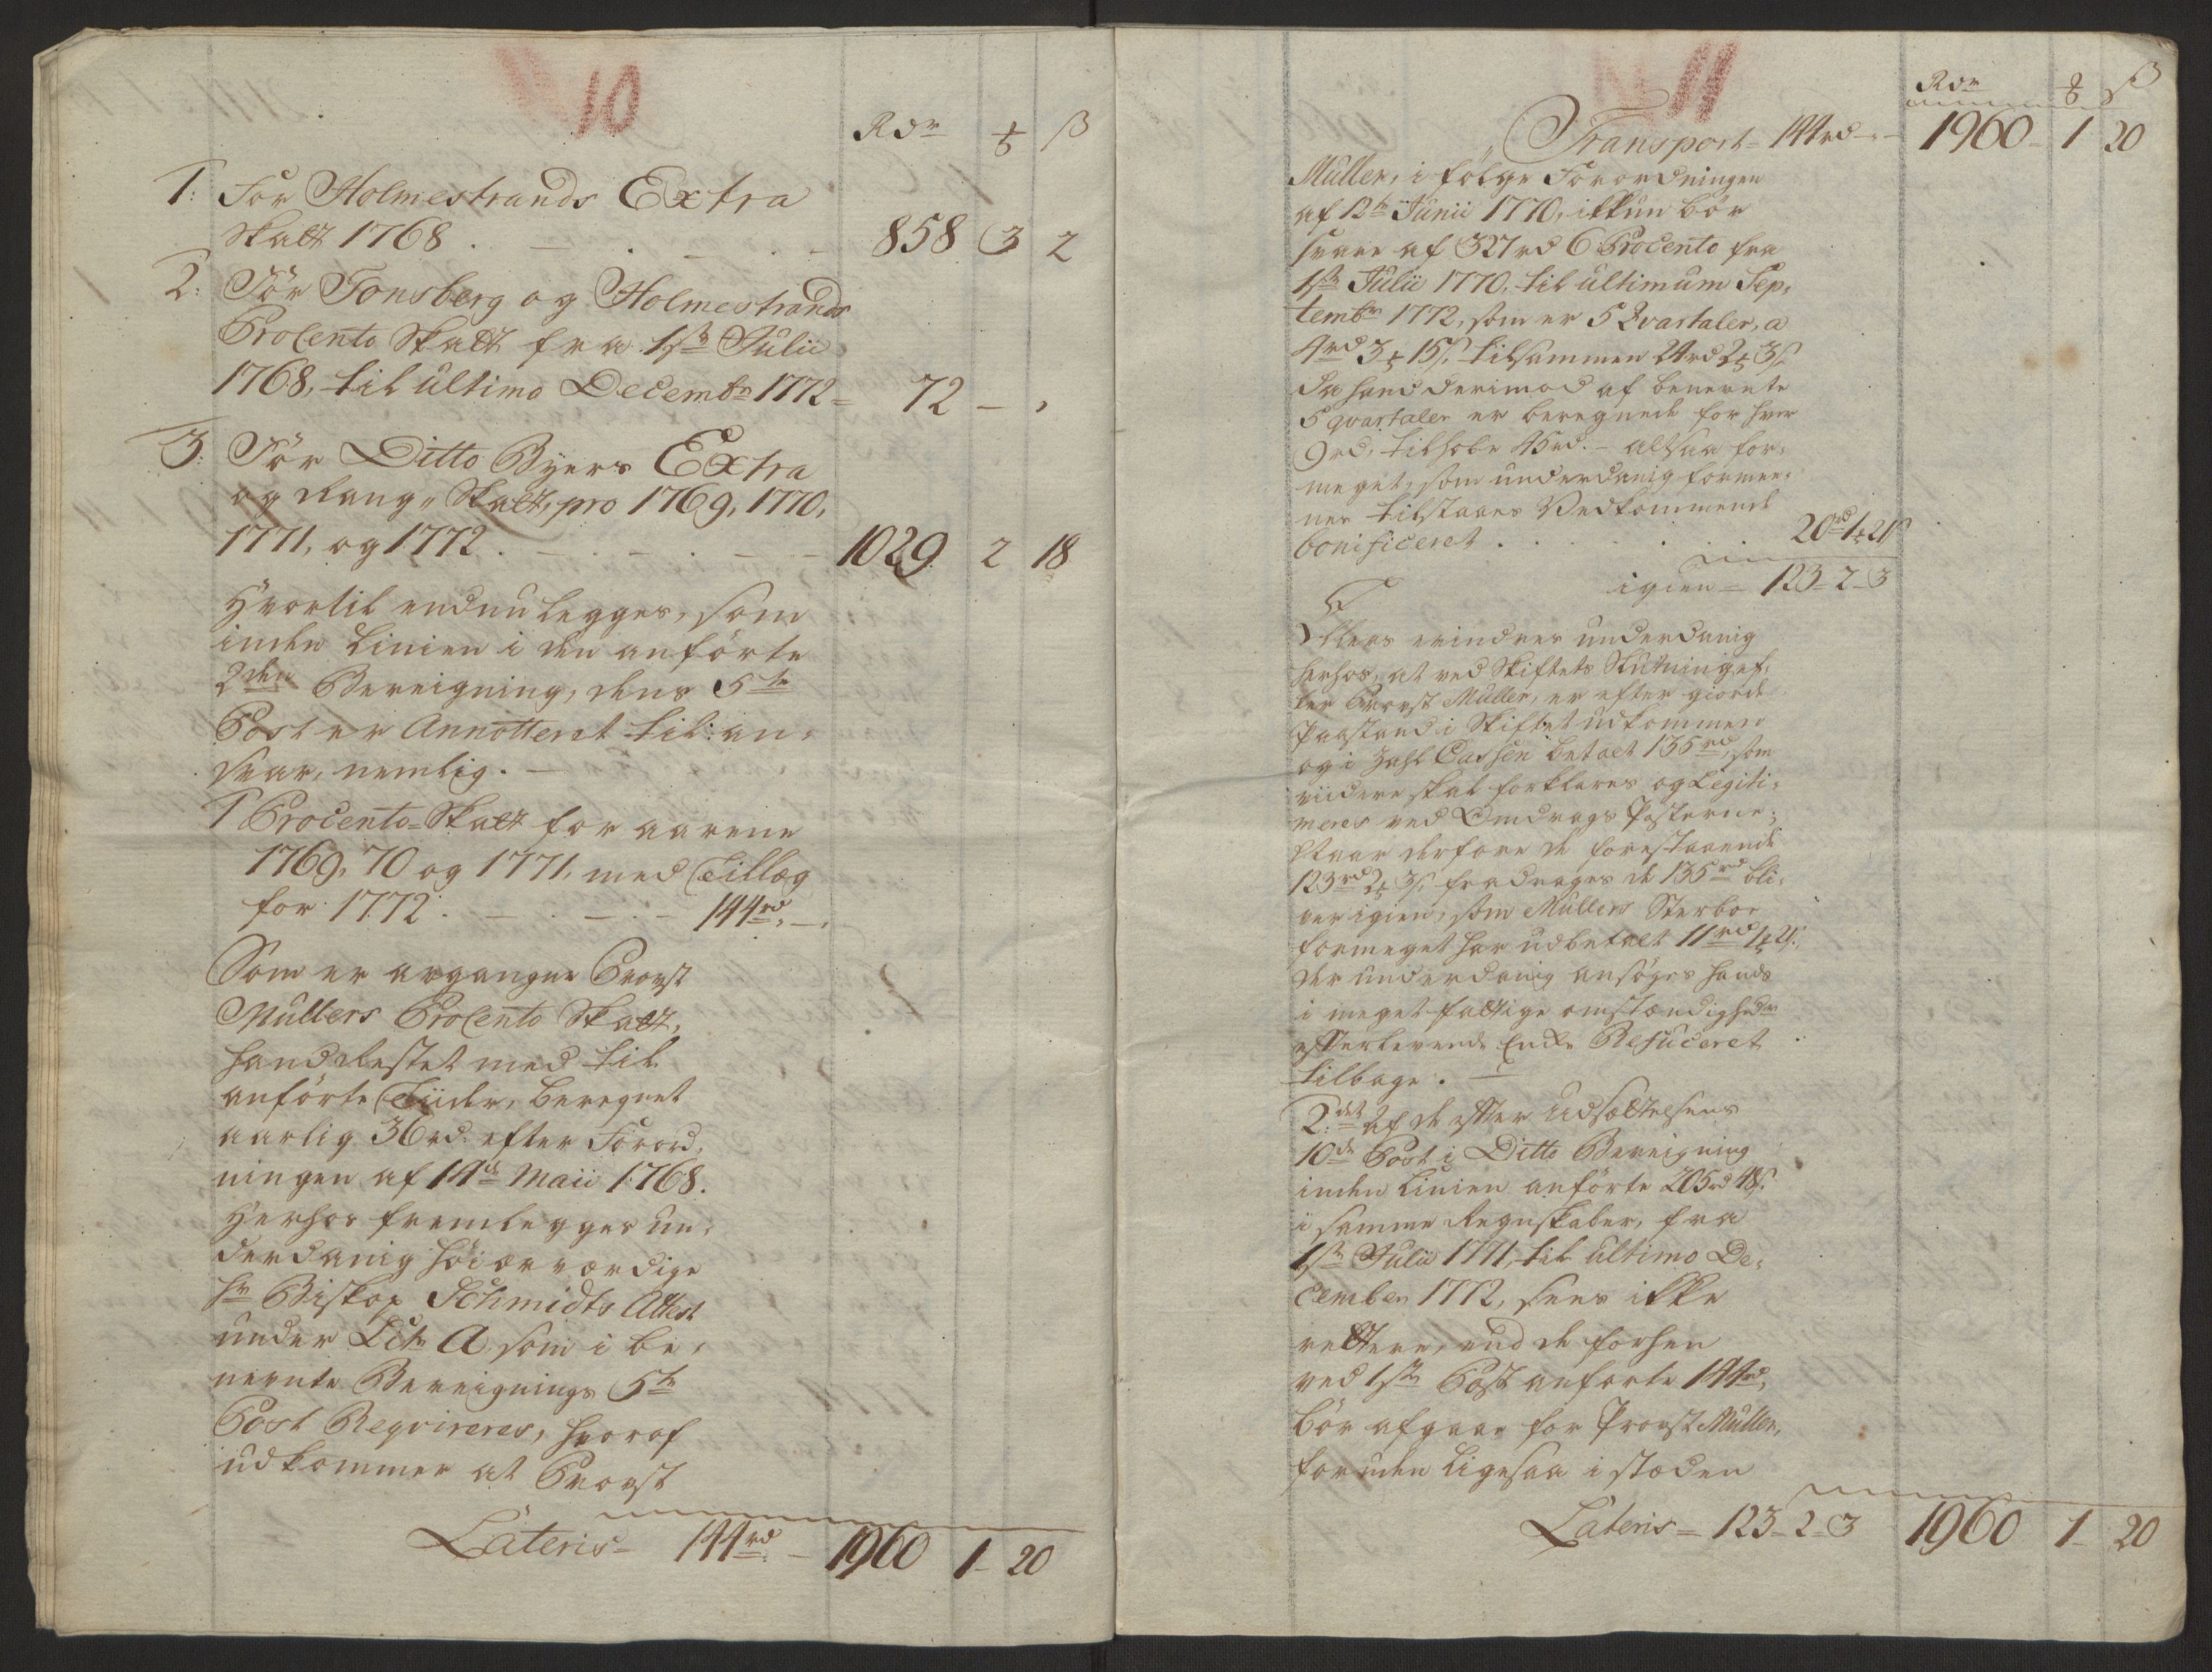 10
Rdr ꝷ ß
1: For Holmestrands Extra
Skatt 1768 . — . — . - 858 3 2
2: For Tonsberg og Holmestrands
Procento Skatt fra 1ste Julii
1768, til ultimo Decembr 1772 = 72 — ,
3: For Ditto Byers Extra
og Rang„ Skatt, pro 1769, 1770,
1771, og 1772 . — . — . — - 1029 2 18
Hvortil endnu legges, som
inden Linien i den anførte
2den Bereigning, dens 5te
Post er Annotteret til: an„
svar, nemlig. —
1 Procento=Skatt for aarene
1769, 70 og 1771, med Tillæg
for 1772 . — . — . — 144rd, —,
Som er afgangne Provst
Müllers Procento Skatt,
hand Restet med til
anførte Tiider, beregnet
aarlig 36rd. efter Forord„
ningen af 14de Maii 1768.
Herhos fremlegges un„
derdanig høiærværdige
Hr Biskop Schmidts Attest
under Litr A som i be„
nevnte Bereignings 5te
Post Reqvireres, hvoraf
udkommer at Provst
Lateris= 144rd — 1960 1- 20
11
Rdr ꝷ ß
„ Transport= 144rd — 1960- 1 20
Müller, i følge Forordningen
af 12te Junii 1770, ikkun bør
svare af 327rd 6 Procento fra
1ste Julii 1770, til ultimum Sep„
tembr 1772, som er 5 Qvartaler, a
4rd 3ꝷ 15ß. tilsammen 24rd 2ꝷ 3ß.
Da hand derimod af benevnte
5 qvartaler er beregnede for hver
9rd, tilhobe 45rd. — altsaa for„
meget, som underdanig formee„
nes tilstaaes Vedkommende
bonificeret . . . . . 20rd 1ꝷ 21ß
igien = 123- 2- 3
Ellers erindres underdanig
herhos, at ved Skiftets Slutning ef„
ter Provst Müller, er efter giorde
Paastand i Skiftet udkommen
og i Zahl Cassen betalt 135rd, som
viidere skal forklares og Legiti„
meres ved Omdrags Posterne;
Naar derfore de forestaaende
123rd 2ꝷ 3ß. fradrages de 135rd bli„
ver igien, som Müllers Sterboe
formeget har udbetalt 11rd 1ꝷ 21ß.
der underdanig ansøges hands
i meget fattige omstændigheder
efterlevende Enke Refuceret
tilbage. —
2:det Af de efter Udsættelsens
10de Post i Ditto Bereigning
inden Linien anførte 205rd 18ß.
i samme Regnskaber, fra
1ste Julii 1771, til ultimo De„
cember 1772, sees ikke
rettere, end de forhen
ved 1ste Post anførte 144rd,
bør afgaae for Provst Müller,
foruden ligesaa i stæden
Lateris = 123- 2- 3 1960 1- 20